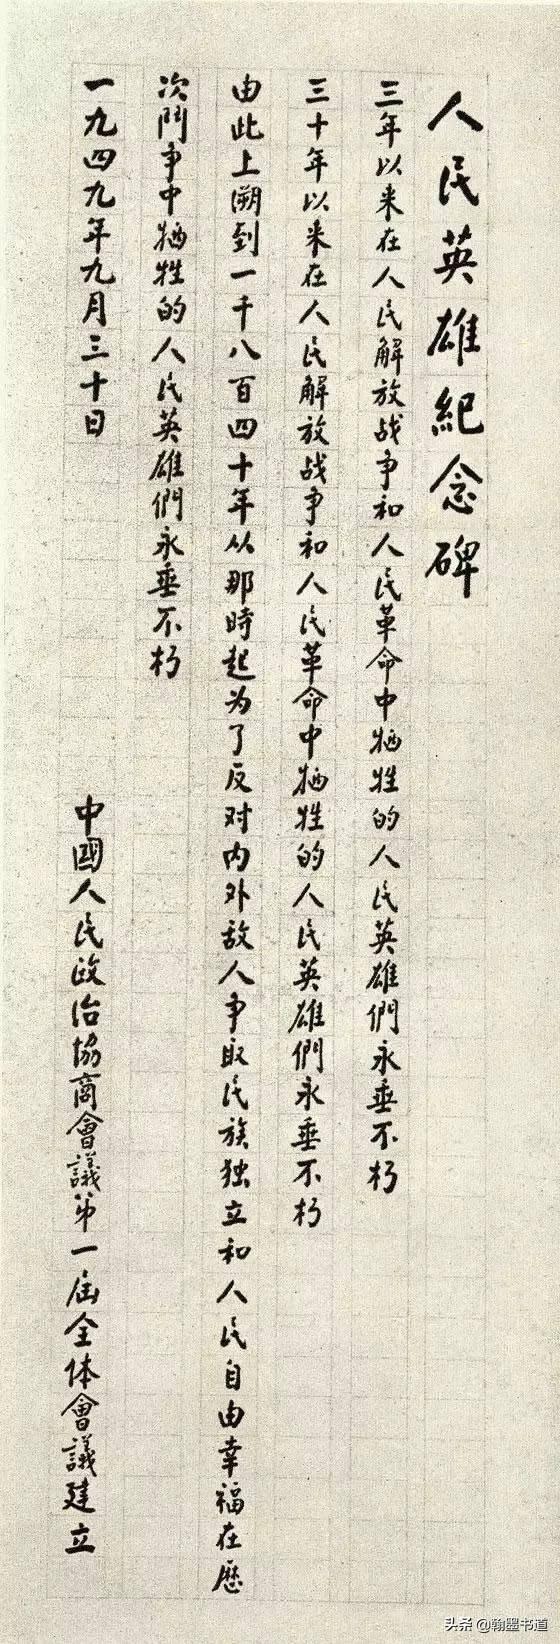 人民英雄紀念碑
三年以来在人民解放战争和人民革命中牺牲的人民英雄們永垂不朽
三十年以来在人民解放战争和人民革命中牺牲的人民英雄們永垂不朽
由此上溯到一千八百四十年从那時起为了反对内外敌人争取民族独立和人民自由幸福在歷
次鬥争中牺牲的人民英雄們永垂不朽
一九四九年九月三十日
中國人民政治協商會議第一届全体會議建立
头条 @翰墨书道